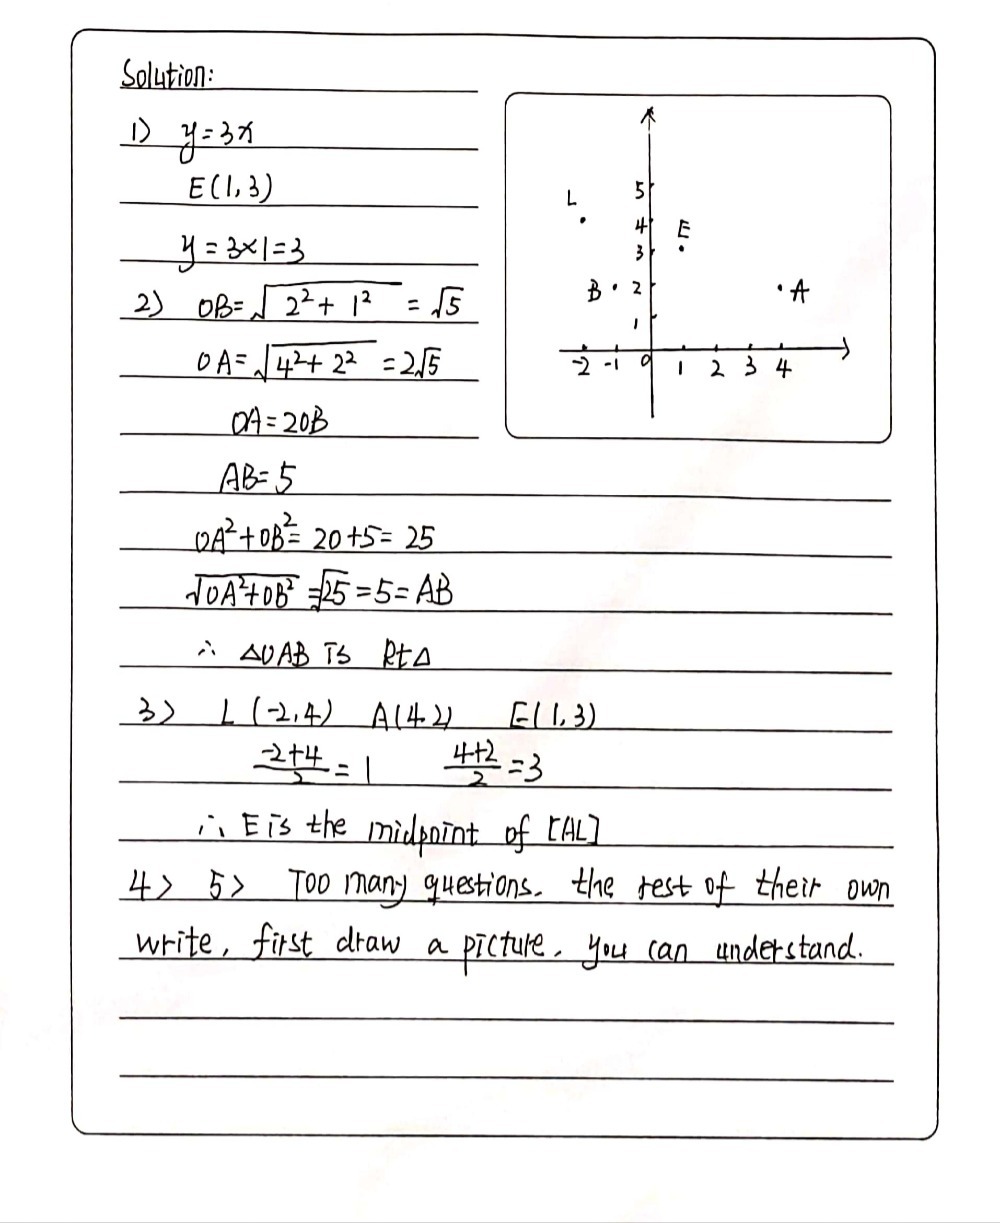 Solution:
1) y=3x
E(1,3)
y=3×1=3
2) OB=√2²+1² =√5
OA=√4²+2² =2√5
OA=2OB
AB=5
OA²+OB²=20+5=25
√OA²+OB² =√25=5=AB
∴ △OAB is Rt△
3) L(-2,4) A(4,2) E(1,3)
-2+4/2=1 4+2/2=3
∴ E is the midpoint of [AL]
4) 5) Too many questions. the rest of their own
write, first draw a picture, you can understand.
5
L
4 E
3
B 2 A
1
-2 -1 0 1 2 3 4